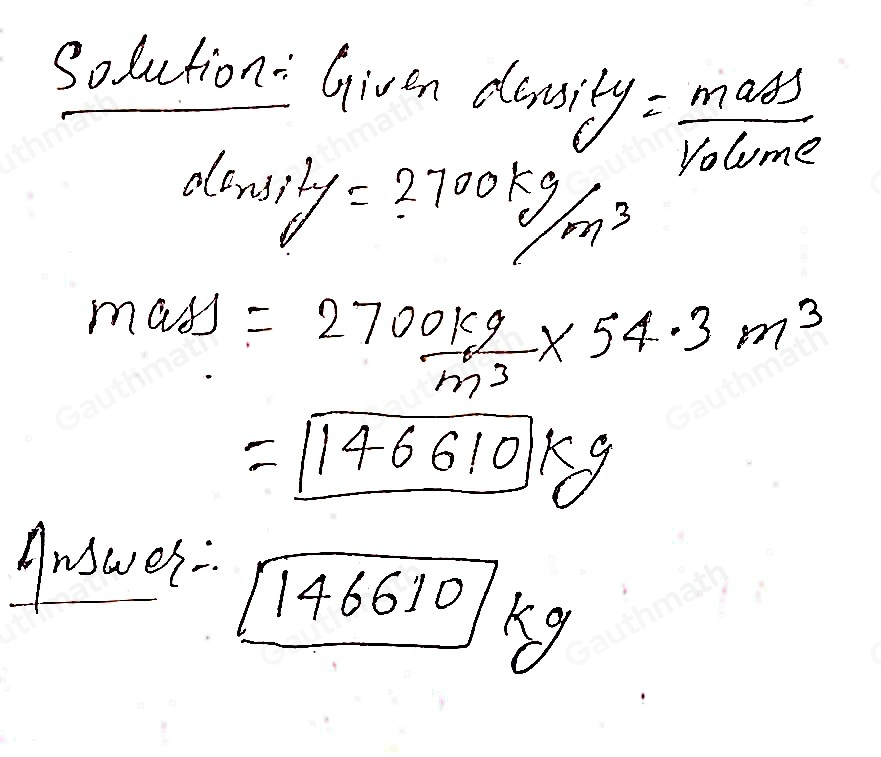 Solution:- Given density = mass / Volume
density = 2700 kg/m³
mass = 2700 kg/m³ × 54.3 m³
= 146610 kg
Answer:- 146610 kg
Gauthmath